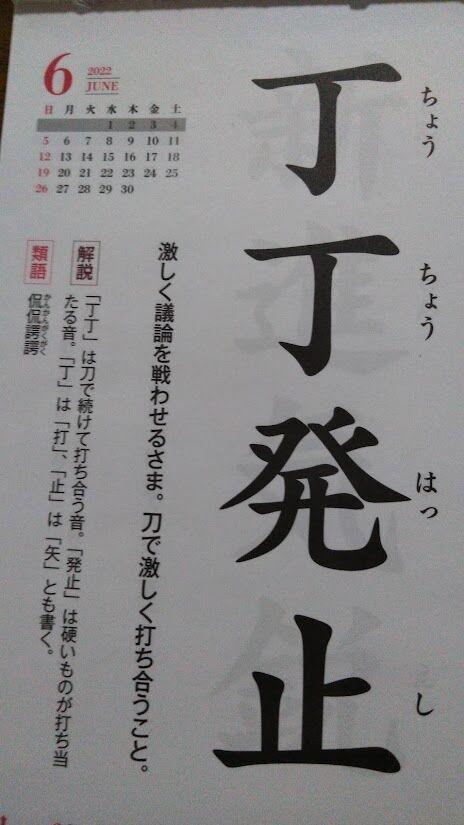 丁丁発止
ちょう ちょう はっ し
激しく議論を戦わせるさま。刀で激しく打ち合うこと。
解説
「丁丁」は刀で続けて打ち合う音。「発止」は硬いものが打ち当
たる音。「丁」は「打」、「止」は「矢」とも書く。
類語
侃侃諤諤
かんかんがくがく
6
2022
JUNE
日 月 火 水 木 金 土
1 2 3 4
5 6 7 8 9 10 11
12 13 14 15 16 17 18
19 20 21 22 23 24 25
26 27 28 29 30